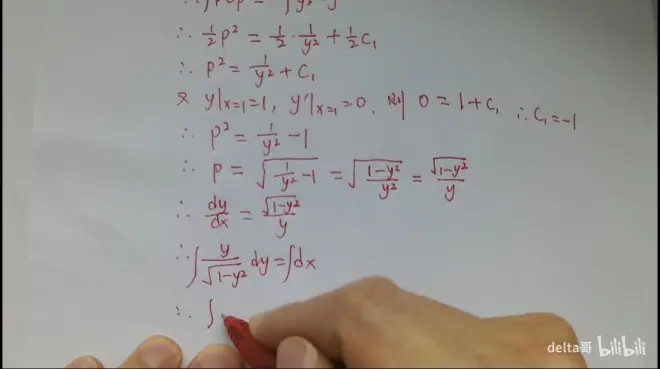 ∴ ½p² = ½·1/y² + ½C₁
∴ p² = 1/y² + C₁
又 y|ₓ₌₁=1, y'|ₓ₌₁=0, 则 0=1+C₁ ∴C₁=-1
∴ p² = 1/y² -1
∴ p = √(1/y² -1) = √((1-y²)/y²) = √(1-y²)/y
∴ dy/dx = √(1-y²)/y
∴ ∫ y/√(1-y²) dy = ∫dx
∴ ∫
delta哥 bilibili